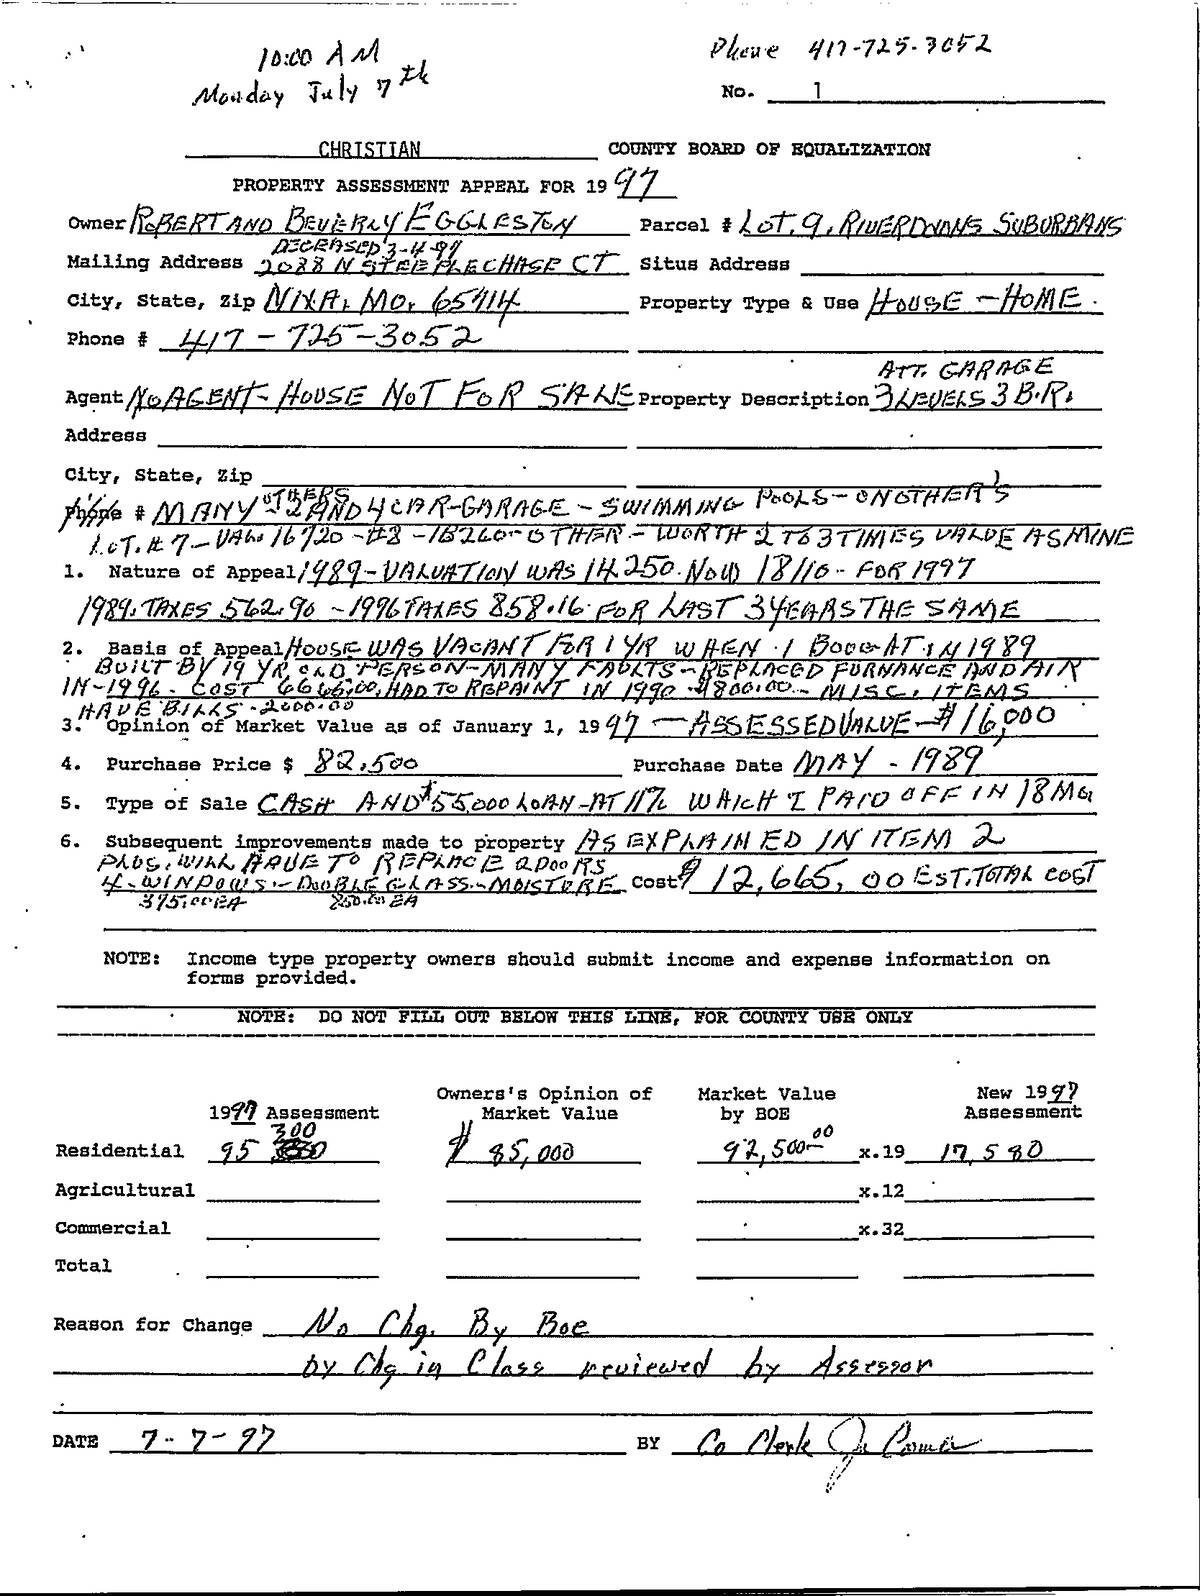 10:00 AM
Monday July 7th
Phone 417-725-3052
No. 1
CHRISTIAN COUNTY BOARD OF EQUALIZATION
PROPERTY ASSESSMENT APPEAL FOR 1997
Owner ROBERT AND BEVERLY EGGLESTON Parcel # LOT. 9, RIVERDOWNS SUBURBANS
DECEASED 3-4-97
Mailing Address 2088 N STEEPLECHASE CT Situs Address
City, State, Zip NIXA, MO, 65714 Property Type & Use HOUSE - HOME.
Phone # 417-725-3052
ATT. GARAGE
Agent NO AGENT - HOUSE NOT FOR SALE Property Description 3 LEVELS 3 B.R.
Address
City, State, Zip
Phone # MANY OTHERS 2 AND 4 CAR-GARAGE - SWIMMING POOLS - ON OTHER'S
LOT. # 7 - VAL. 16720 - #8 - 18260 - OTHER - WORTH 2 TO 3 TIMES VALUE AS MINE
1. Nature of Appeal 1989 - VALUATION WAS 14.250. NOW 18110 - FOR 1997
1989. TAXES 562.90 - 1996 TAXES 858.16. FOR LAST 3 YEARS THE SAME
2. Basis of Appeal HOUSE WAS VACANT FOR 1 YR WHEN I BOUGHT IN 1989
BUILT BY 19 YR OLD PERSON - MANY FAULTS - REPLACED FURNANCE AND AIR
IN - 1996 - COST 6665.00, HAD TO REPAINT IN 1990 - $800.00 - MISC. ITEMS
HAVE BILLS - 2000.00
3. Opinion of Market Value as of January 1, 1997 - ASSESSED VALUE - $16,000
4. Purchase Price $ 82,500 Purchase Date MAY - 1989
5. Type of Sale CASH AND $55,000 LOAN - AT 11% WHICH I PAID OFF IN 18 MO.
6. Subsequent improvements made to property AS EXPLAINED IN ITEM 2
PLUS. WILL HAVE TO REPLACE 2 DOORS
4 - WINDOWS - DOUBLE GLASS - MOISTURE Cost $12,665.00 EST. TOTAL COST
375.00 EA 850.00 EA
NOTE: Income type property owners should submit income and expense information on
forms provided.
NOTE: DO NOT FILL OUT BELOW THIS LINE, FOR COUNTY USE ONLY
1997 Assessment Owners's Opinion of Market Value Market Value by BOE New 1997 Assessment
Residential 95 300 $ 85,000 92,500.00 x.19 17,580
Agricultural x.12
Commercial x.32
Total
Reason for Change No Chg. By Boe
by Chg in Class reviewed by Assessor
DATE 7-7-97 BY Co Clerk